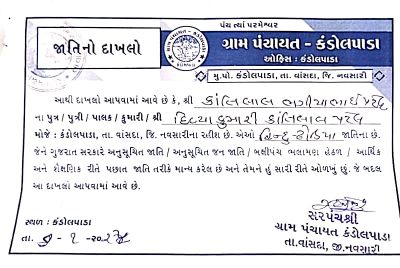 પંચ ત્યાં પરમેશ્વર
જાતિનો દાખલો
ગ્રામ પંચાયત - કંડોલપાડા
ઓફિસ : કંડોલપાડા
મુ.પો. કંડોલપાડા, તા. વાંસદા, જિ. નવસારી
આથી દાખલો આપવામાં આવે છે કે, શ્રી કાંતિલાલ ભગીયાભાઈ પટેલ
ના પુત્ર / પુત્રી / પાલક / કુમારી / શ્રી દિવ્યાકુમારી કાંતિલાલ પટેલ
મોજે : કંડોલપાડા, તા. વાંસદા, જિ. નવસારીના રહીશ છે. એઓ હિન્દુ-ધોડિયા જાતિના છે.
જેને ગુજરાત સરકારે અનુસૂચિત જાતિ / અનુસૂચિત જન જાતિ / બક્ષીપંચ ભલામણ હેઠળ / આર્થિક
અને શૈક્ષણિક રીતે પછાત જાતિ તરીકે માન્ય કરેલ છે અને તેમને હું સારી રીતે ઓળખું છું. જે બદલ
આ દાખલો આપવામાં આવે છે.
સ્થળ : કંડોલપાડા
તા.
સરપંચશ્રી
ગ્રામ પંચાયત કંડોલપાડા
તા.વાંસદા, જી.નવસારી